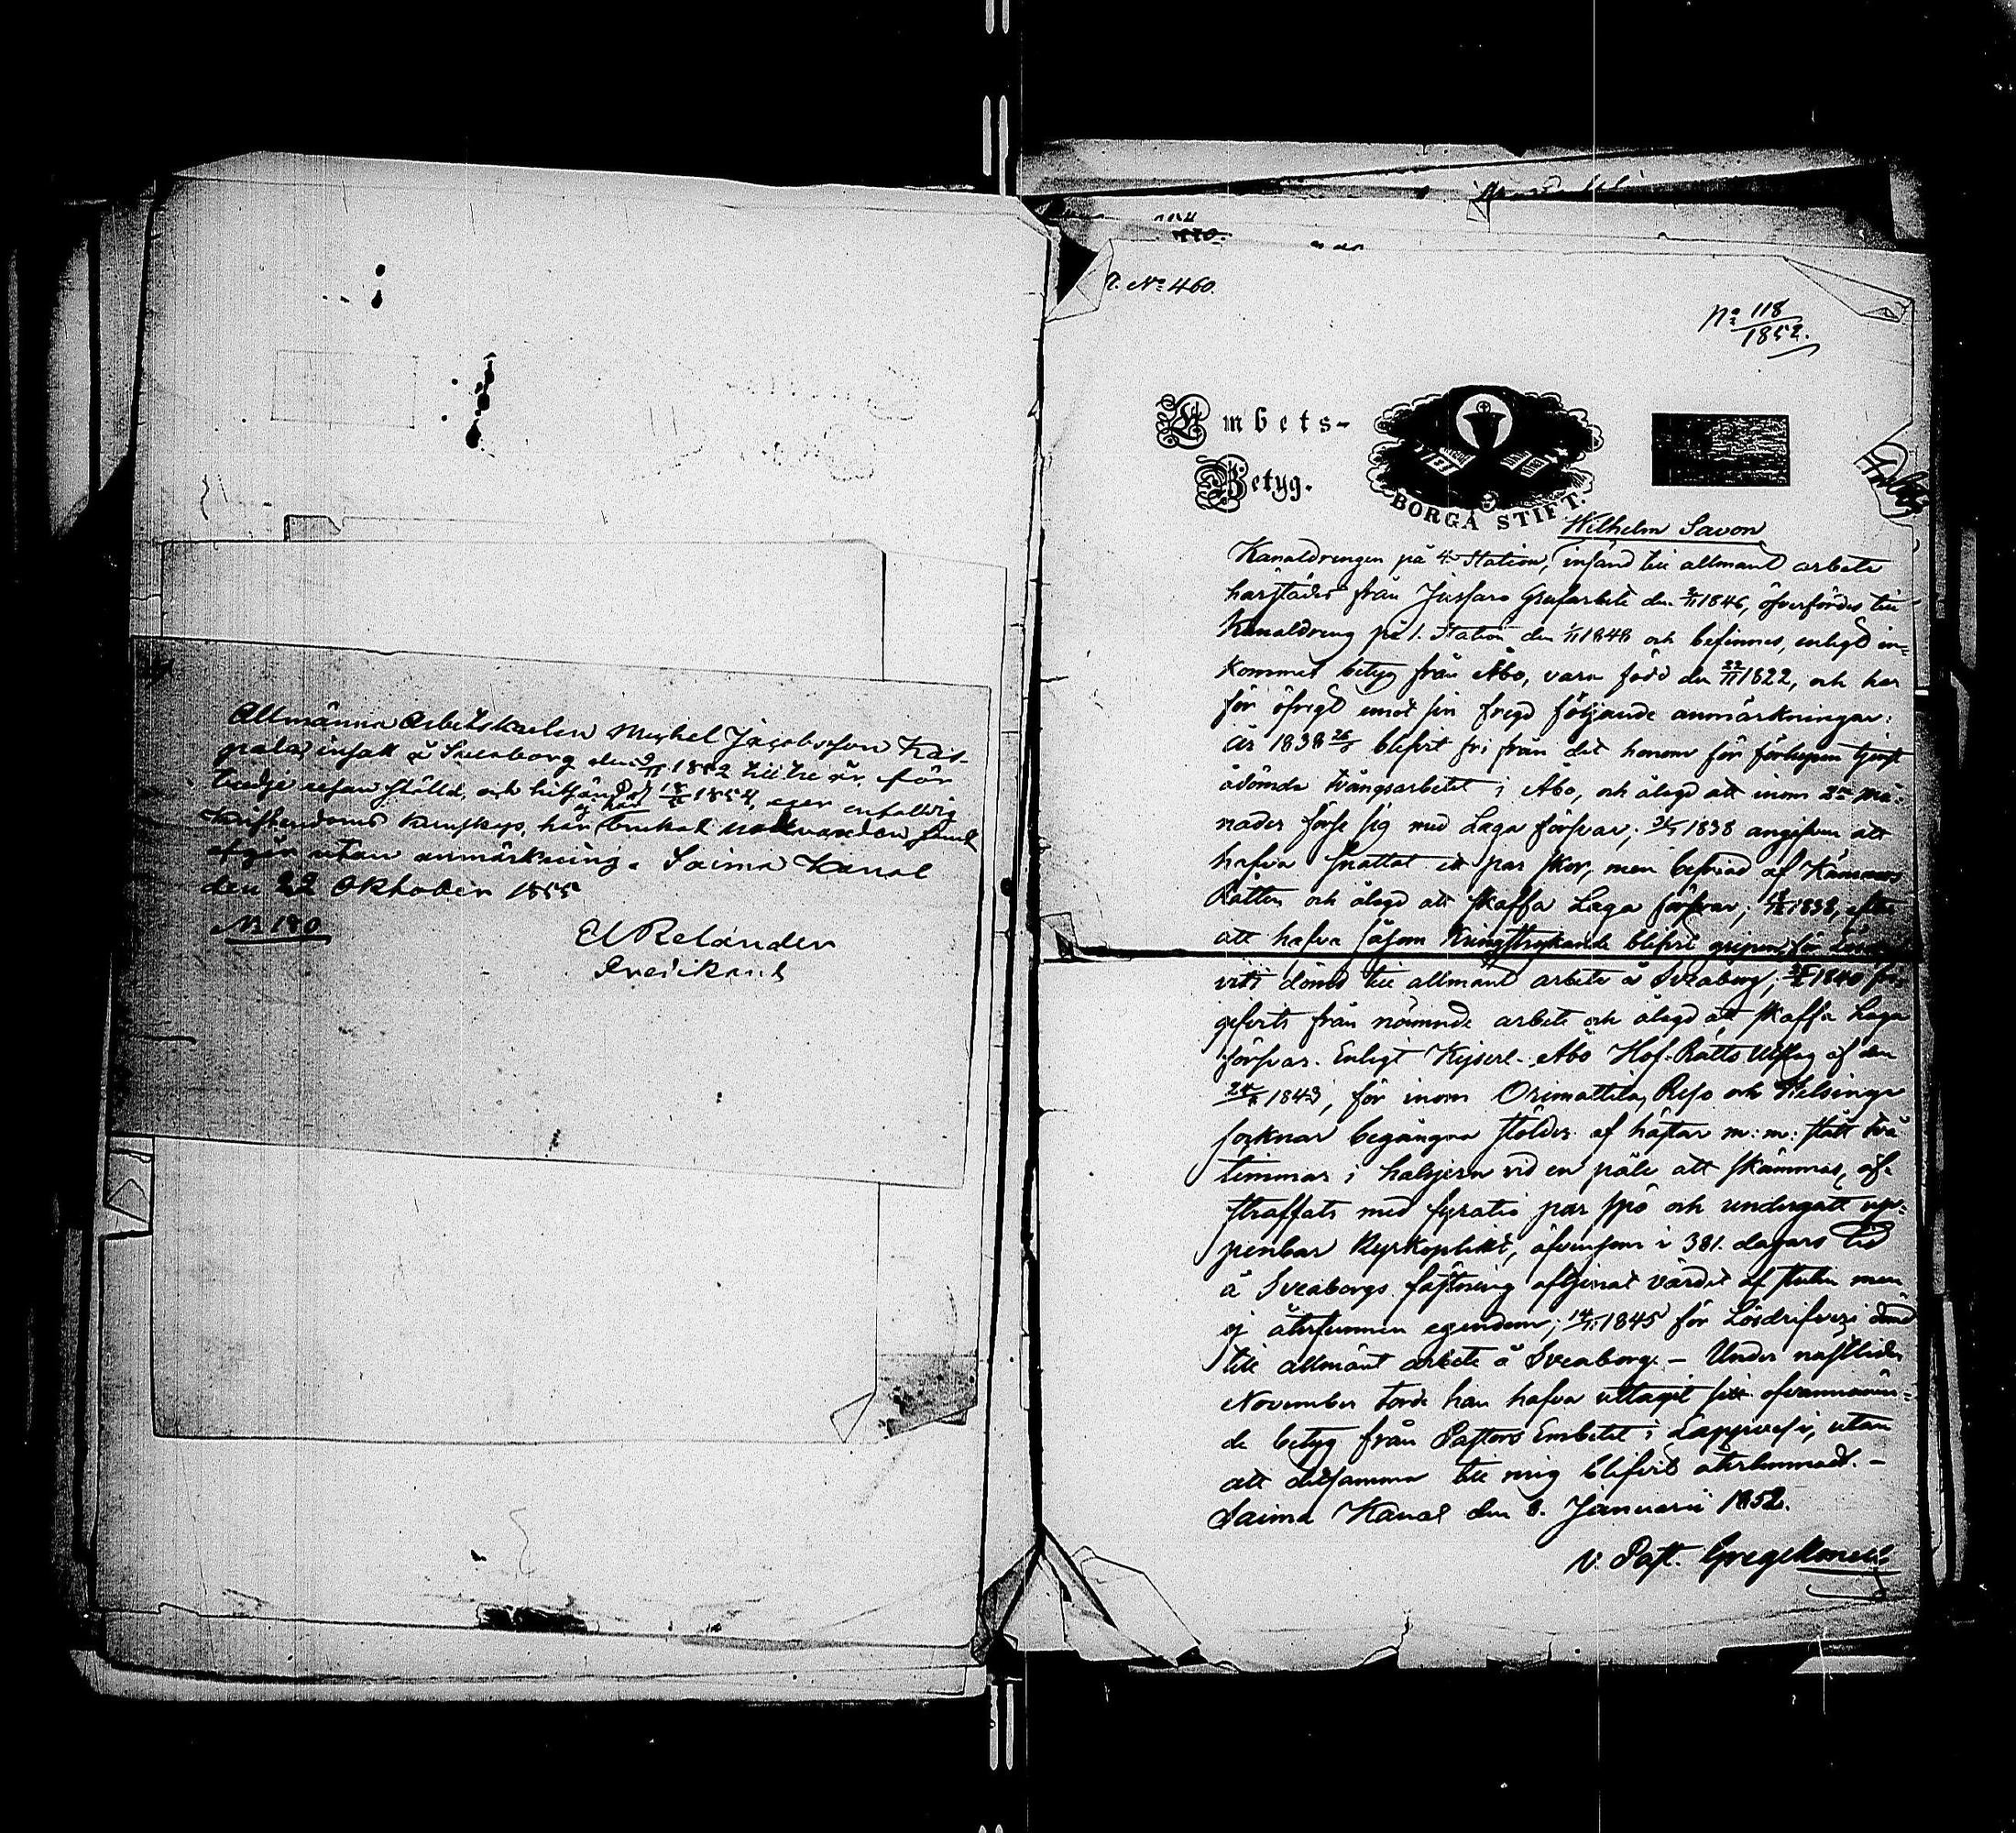 Allmänna Arbetskarlen Michel Jacobsson Kas-
pala, insatt å Sveaborg den 9/11 1852 till tre år för
tredje resan stöld, och hitsänd d. 18/5 1854, eger enfaldig
Kristendoms kunskap, har brukat nattvarden samt
afgår utan anmärkning. Saima Kanal
den 22 Oktober 1855
No 180
El Relander
Predikant
No 460.
No 118
1852.
Embets-
Betyg.
BORGÅ STIFT.
Wilhelm Savon
Kanaldrengen på 4. Station, insänd till allmänt arbete
härstädes från Jussarö Grufarbete den 2/11 1846, öfverfördes till
Kanaldreng på 1. Station den 1/11 1848 och befinnes, enligt in-
kommet betyg från Åbo, vara född den 22/11 1822, och har
för öfrigt emot sin fregd följande anmärkningar:
år 1838 26/5 blifvit fri från det honom för förlupen tjenst
ådömda tvångsarbetet i Åbo, och ålagd att inom 2ne må-
nader förse sig med Laga försvar; 1838 angifven att
hafva snattat ett par skor, men befriad af Kämners
Rätten och ålagd att skaffa Laga försvar; 1838, efter
att hafva såsom Kringstrykande blifvit gripen för Lösdrif-
veri dömd till allmänt arbete å Sveaborg; 1840 fri-
gifvits från nämnde arbete och ålagd att skaffa Laga
försvar. Enligt Kejserl. Åbo Hof-Rätts Utslag af den
1843, för inom Orimattila, Reso och Helsinge
socknar begångna stölder af hästar m: m: stått två
timmar i halsjern vid en påle att skämmas, af-
straffats med fyratio par spö och undergått up-
penbar Kyrkoplikt, äfvensom i 381. dagars tid
å Sveaborgs fästning aftjenat värdet af stulen men
ej återfunnen egendom; 14/11 1845 för Lösdrifveri dömd
till allmänt arbete å Sveaborg. - Under nästlidne
November torde han hafva uttagit sitt ofvannämn-
de betyg från Pastors Embetet i Lappvesi, utan
att detsamma till mig blifvit återlemnadt. -
Saima Kanal den 8. Januarii 1852.
V. Past.